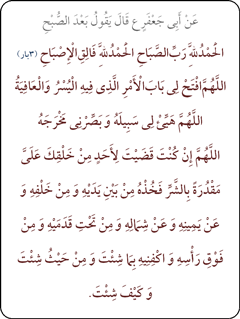 عَنْ أَبِي جَعْفَرٍ ع قَالَ يَقُولُ بَعْدَ الصُّبْحِ
الْحَمْدُ لِلَّهِ رَبِّ الصَّبَاحِ الْحَمْدُ لِلَّهِ فَالِقِ الْإِصْبَاحِ (۳بار)
اللَّهُمَّ افْتَحْ لِي بَابَ الْأَمْرِ الَّذِي فِيهِ الْيُسْرُ وَ الْعَافِيَةُ
اللَّهُمَّ هَيِّئْ لِي سَبِيلَهُ وَ بَصِّرْنِي مَخْرَجَهُ
اللَّهُمَّ إِنْ كُنْتَ قَضَيْتَ لِأَحَدٍ مِنْ خَلْقِكَ عَلَيَّ
مَقْدُرَةً بِالشَّرِّ فَخُذْهُ مِنْ بَيْنِ يَدَيْهِ وَ مِنْ خَلْفِهِ وَ
عَنْ يَمِينِهِ وَ عَنْ شِمَالِهِ وَ مِنْ تَحْتِ قَدَمَيْهِ وَ مِنْ
فَوْقِ رَأْسِهِ وَ اكْفِنِيهِ بِمَا شِئْتَ وَ مِنْ حَيْثُ شِئْتَ
وَ كَيْفَ شِئْتَ.